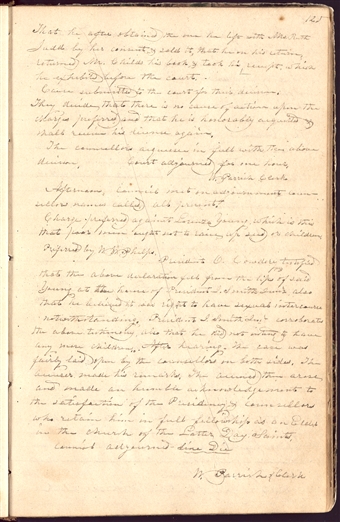 125
That he after obtained the one he left with Mrs. Ruth
Judd by her consent & sold it, that he in his return
returned Mr. Childs his book & took his receipt, which
he exhibited before the court.
Cause submitted to the court for their decision.
They decide, that there is no cause of action upon the
charges prefered, and that he is honorably acquitted &
shall receive his license again.
The councellors acquiesce in full with the above
decision. Court adjourned for one hour,
W. Parrish Clerk
Afternoon, council met on adjournment coun-
sellor names called all present.
Charge prefered against Lorenzo Young, which is this
that poor men ought not to raise up seed or children
Prefered by W W Phelps.
President O. Cowdery testifyed
that the above declaration fell from the lips of said
Young at the house of President J. Smith Jun. also
that he believed it was right to have sexual intercourse
notwithstanding. President J. Smith Jun. corroborates
the above testimony, also that he did not intend to have
any more children. After hearing, the case was
fairly laid open by the counsellors on both sides, The
accuser made his remarks, The accused then arose
and made an humble acknowledgement to
the satisfaction of the Presidency & counsellors
who retain him in full fellowship as an Elder
in the church of the Latter Day Saints,
Council adjourned sine Die
W. Parrish Clerk